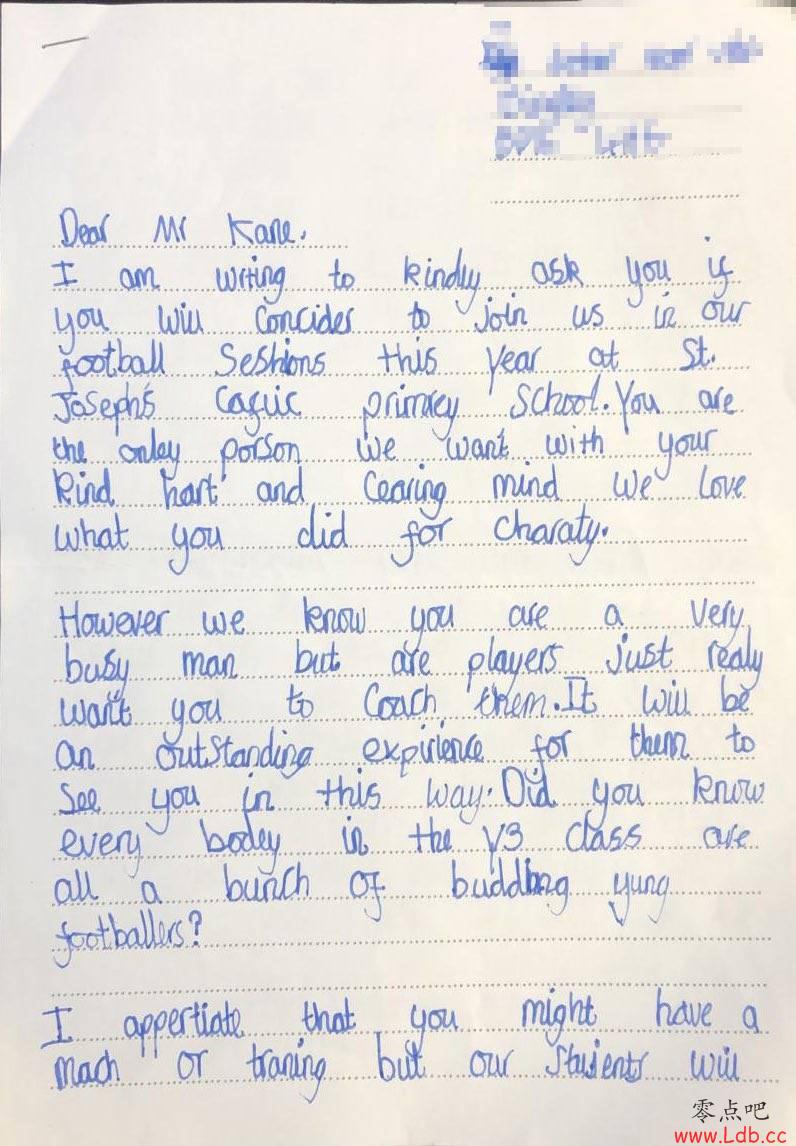 Dear Mr Kane.
I am writing to kindly ask you if
you will concider to join us in our
football Seshions this year at St.
Joseph's primrey School. You are
the onley porson we want with your
kind hart and cearing mind we love
what you did for charaty.
However we know you are a very
busy man but are players just realy
want you to coach them. It will be
an outstanding expirience for them to
See you in this way. Did you know
every bodey in the Y3 class are
all a bunch of budding yung
footballers?
I appertiate that you might have a
mach or traning but our will
零点吧
www.Ldb.cc